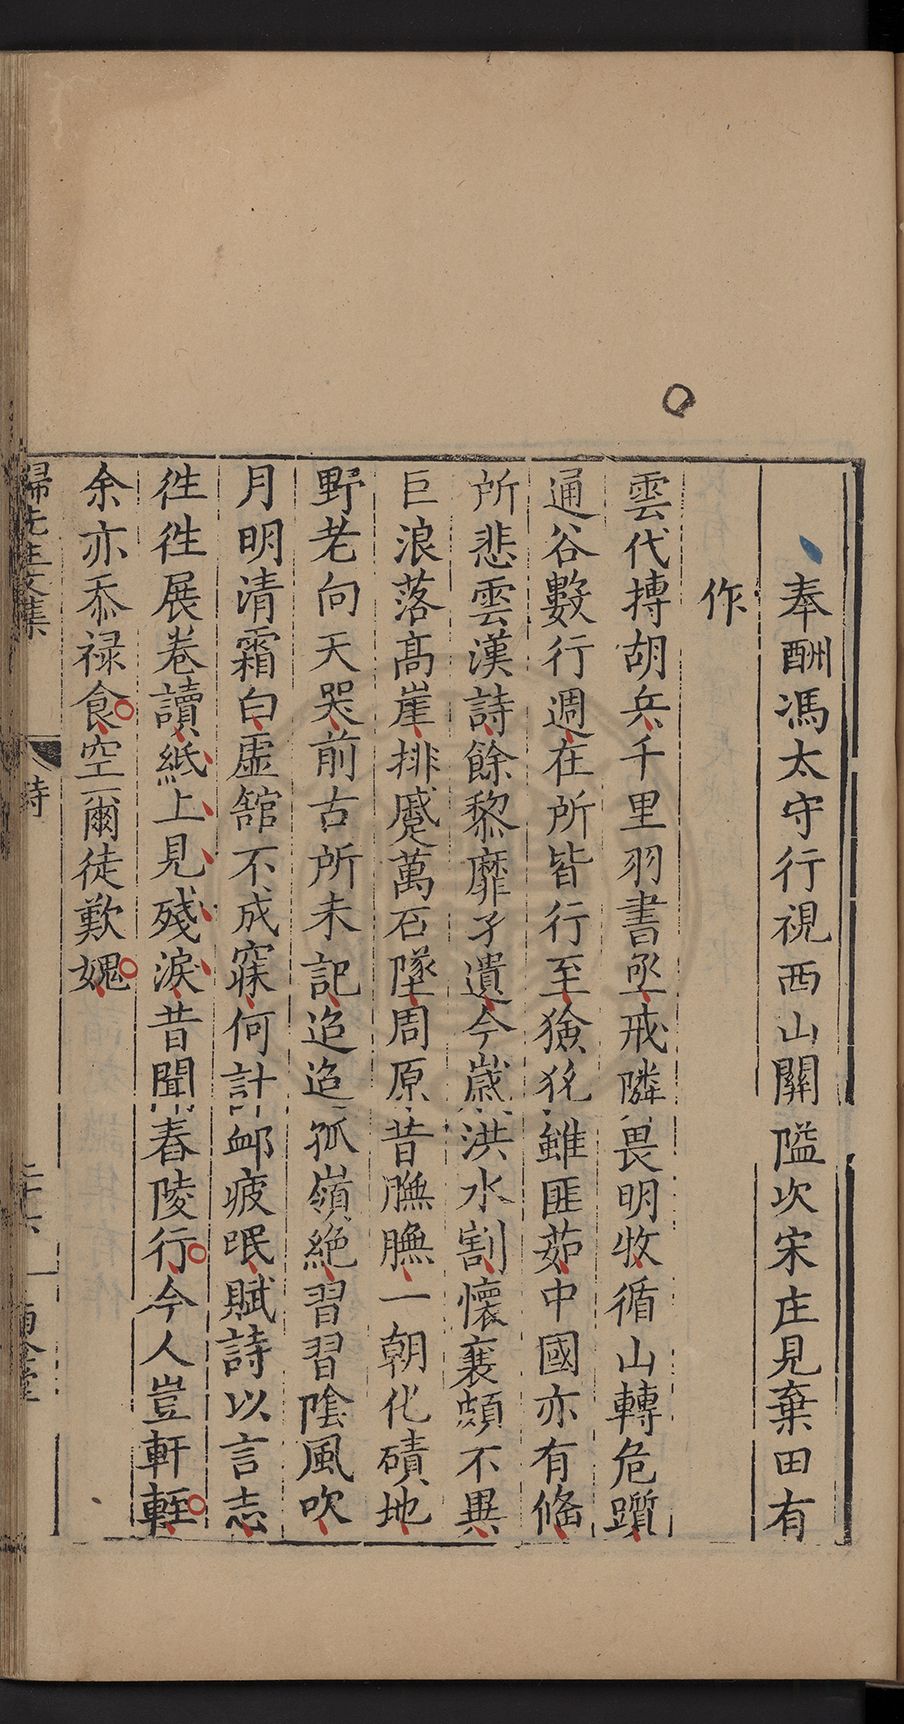 奉酬馮太守行視西山關隘次宋庄見棄田有
作
雲代搏胡兵千里羽書亟戒隣畏明收循山轉危躓
通谷數行週在所皆行至獫狁雖匪茹中國亦有偹
所悲雲漢詩餘黎靡孑遺今歳洪水割懷襄頗不異
巨浪落髙崖排蹙萬石墜周原昔膴膴一朝化磧地
野老向天哭前古所未記迢迢孤嶺絶習習陰風吹
月明清霜白虚舘不成寐何計䘏疲㫰賦詩以言志
徃徃展巻讀紙上見殘淚昔聞舂陵行今人豈軒輊
余亦忝禄食空爾徒歎媿
歸先生文集 詩